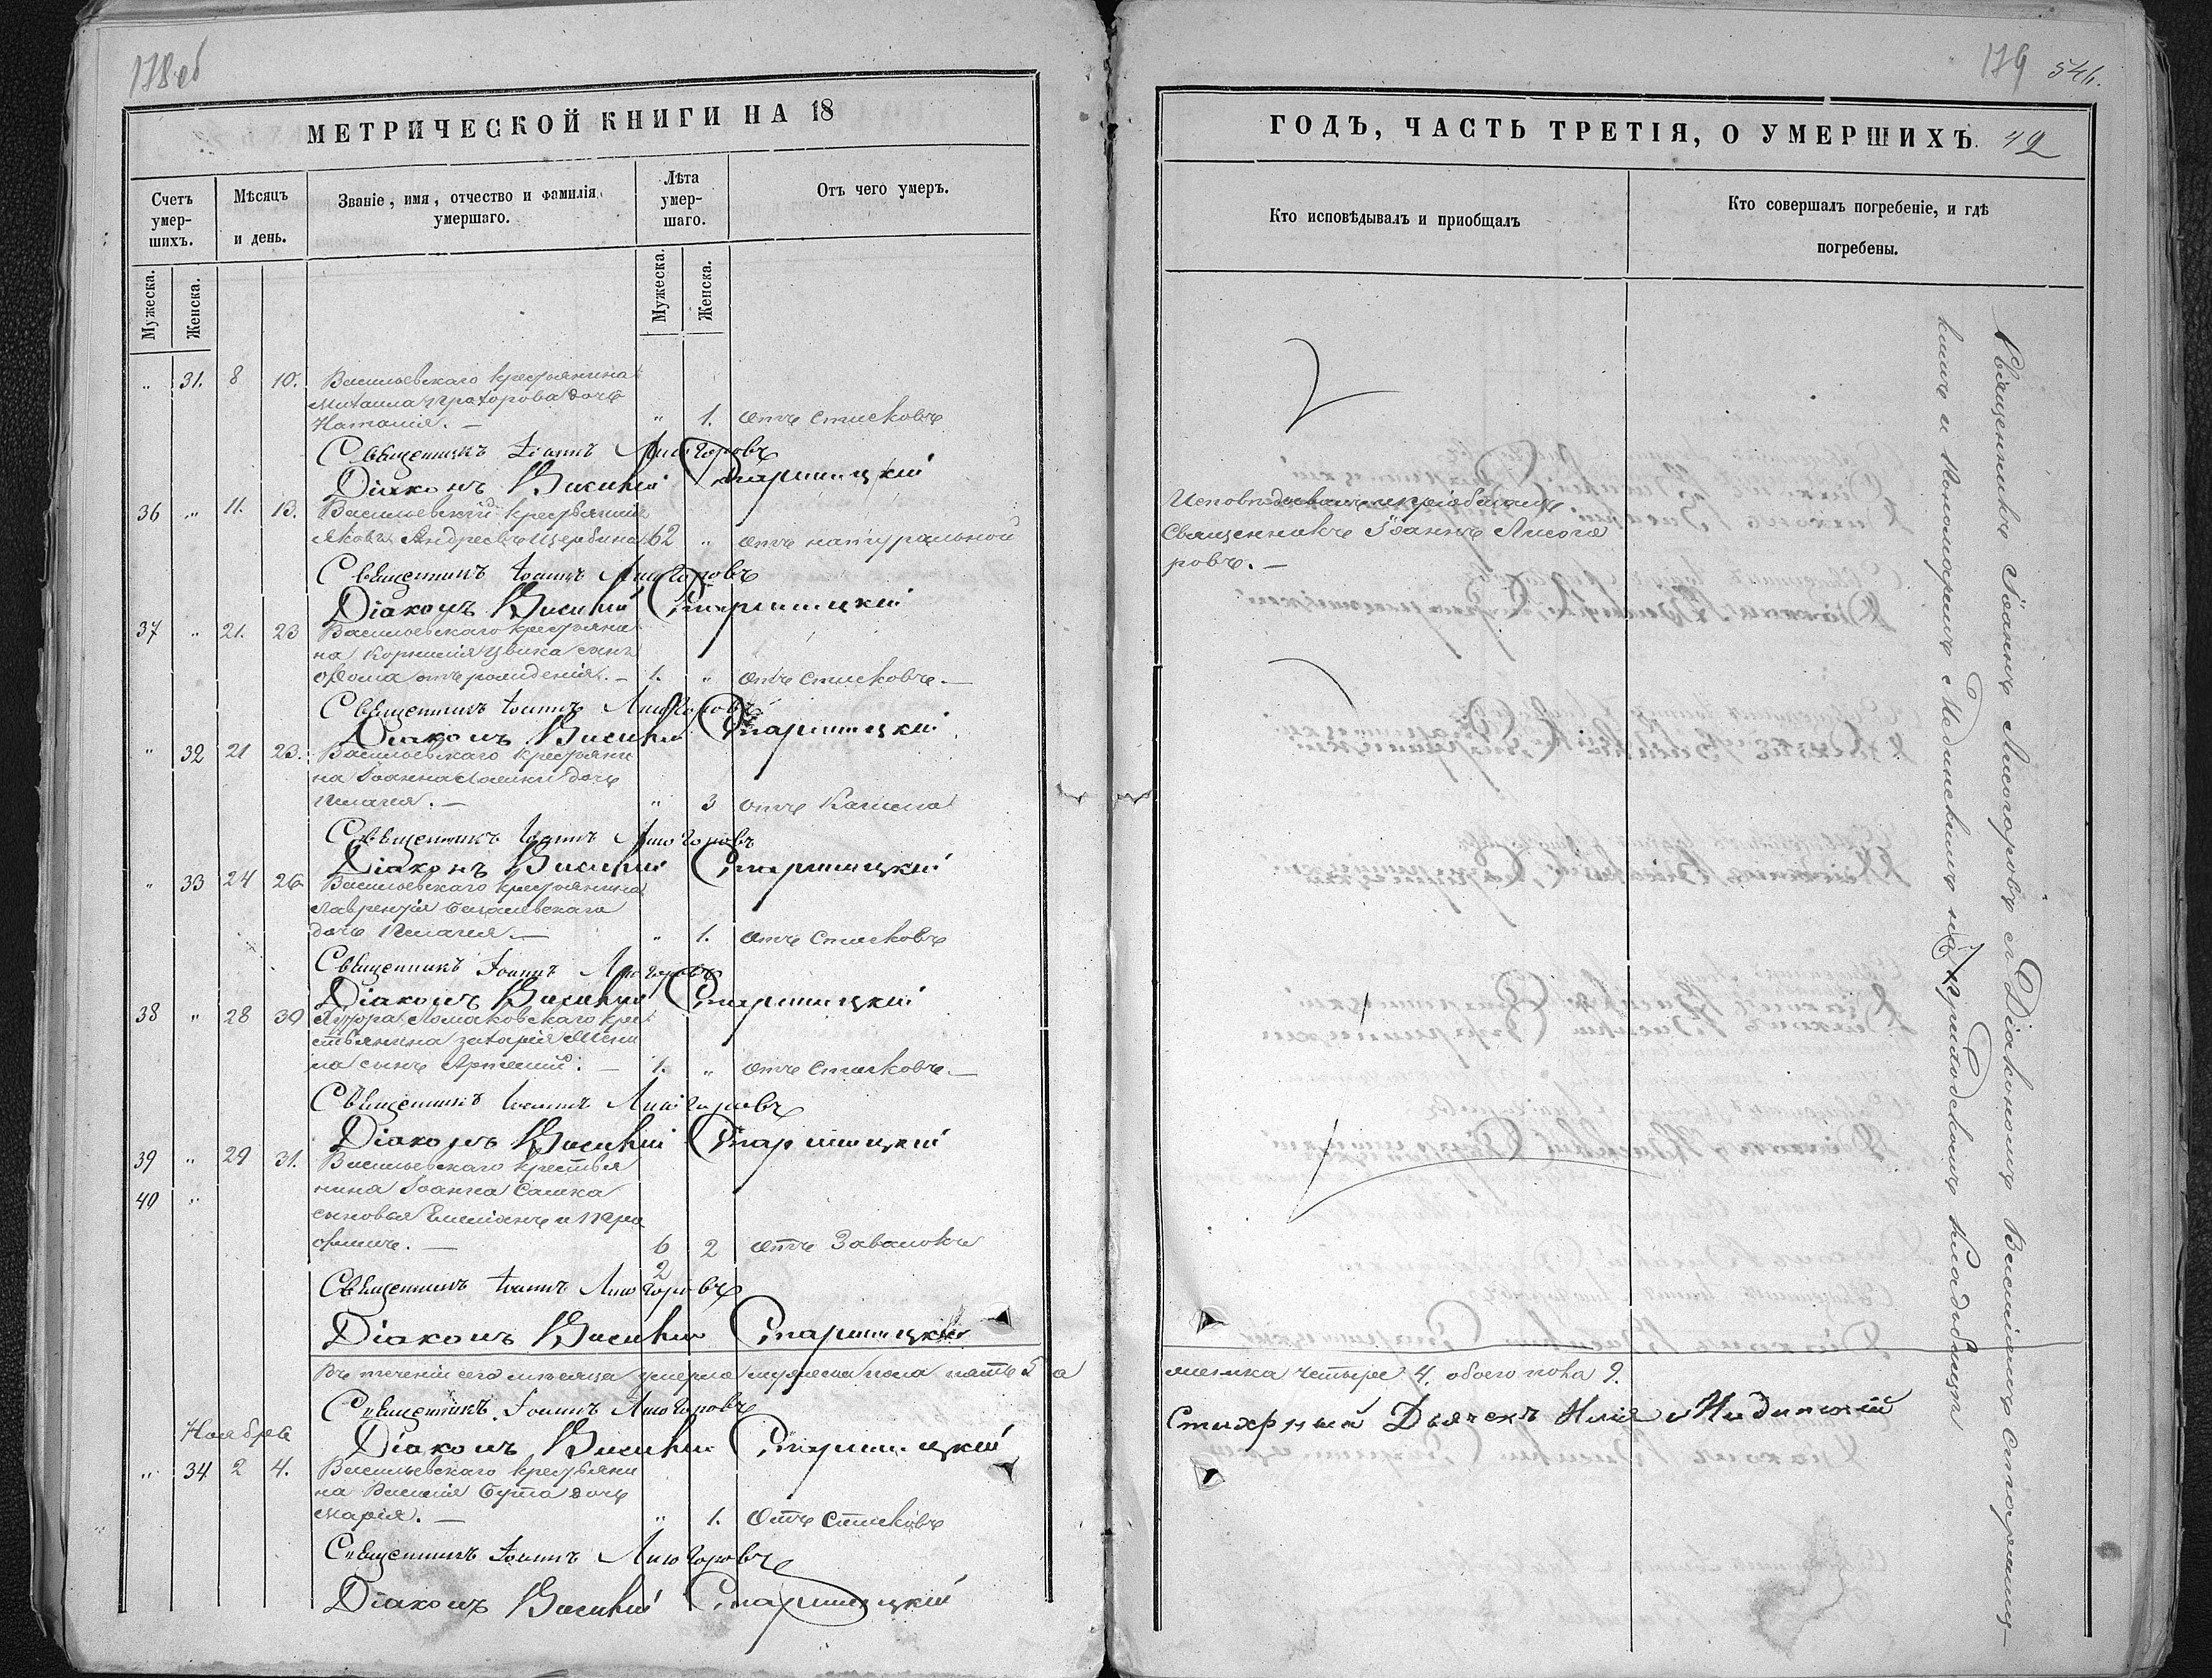 178 об
МЕТРИЧЕСКОЙ КНИГИ НА 18
Счетъ умер-шихъ.
Мѣсяцъ и день.
Званіе, имя, отчество и фамилія умершаго.
Лѣта умер-шаго.
Отъ чего умеръ.
Мужеска.
Женска.
Мужеска.
Женска.
" 31. 8 10. Васильевскаго крестьянина
Михаила Прохорова дочь
Наталія. — " 1. отъ списковъ
Священникъ Іоаннъ Лисогоровъ
Діаконъ Василій Старишицкій
36 " 11. 13. Васильевскій крестьянинъ
Яковъ Андреевъ Щербина 62 " отъ натуральной
Священникъ Іоаннъ Лисогоровъ
Діаконъ Василій
37 " 21. 23 Васильевскаго крестьяни
на Корнилія Цвика сынъ
Ѳома отъ рожденія. — 1. " отъ списковъ —
Священникъ Іоаннъ Лисогоровъ
Діаконъ Василій
" 32 21 23. Васильевскаго крестьяни
на Іоанна дочь
Пелагея. — " 3 отъ Кашела
Священникъ Іоаннъ Лисогоровъ
Діаконъ Василій
" 33 24 26 Васильевскаго крестьянина
Лаврентія
дочь Пелагея — " 1. отъ списковъ
Священникъ Іоаннъ Лисогоровъ
Діаконъ Василій
38 " 28 30 Хутора Ломаковскаго кре
стьянина Захарія
ла сынъ Артемій. — 1. " отъ списковъ —
Священникъ Іоаннъ Лисогоровъ
Діаконъ Василій
39 " 29 31. Васильевскаго крестья
нина Іоанна Сашка
40 "
сыновья Емеліанъ и Пар
феній. — 6 2 отъ Завалокъ
2
Священникъ Іоаннъ Лисогоровъ
Діаконъ Василій
Въ теченіи сего мѣсяца умерло мужеска пола пять 5 а
Священникъ Іоаннъ Лисогоровъ
Діаконъ Василій
Ноября
" 34 2 4. Васильевскаго крестьяни
на Василія Бута дочь
Марія. — " 1. Отъ списковъ
Священникъ Іоаннъ Лисогоровъ
Діаконъ Василій
179 546.
ГОДЪ, ЧАСТЬ ТРЕТІЯ, О УМЕРШИХЪ. 42
Кто исповѣдывалъ и пріобщалъ
Кто совершалъ погребеніе, и гдѣ погребены.
Исповѣдывалъ и пріобщалъ
Священникъ Іоаннъ Лисого
ровъ. —
женска четыре 4. обоего пола 9.
Стихарный Дьячекъ Илія
Священникъ Іоаннъ Лисогоровъ съ Діакономъ Василіемъ
кимъ и Пономаремъ на приходскомъ кладбищѣ